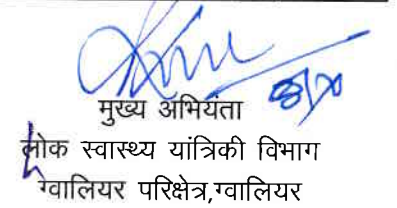 मुख्य अभियंता
लोक स्वास्थ्य यांत्रिकी विभाग
ग्वालियर परिक्षेत्र,ग्वालियर